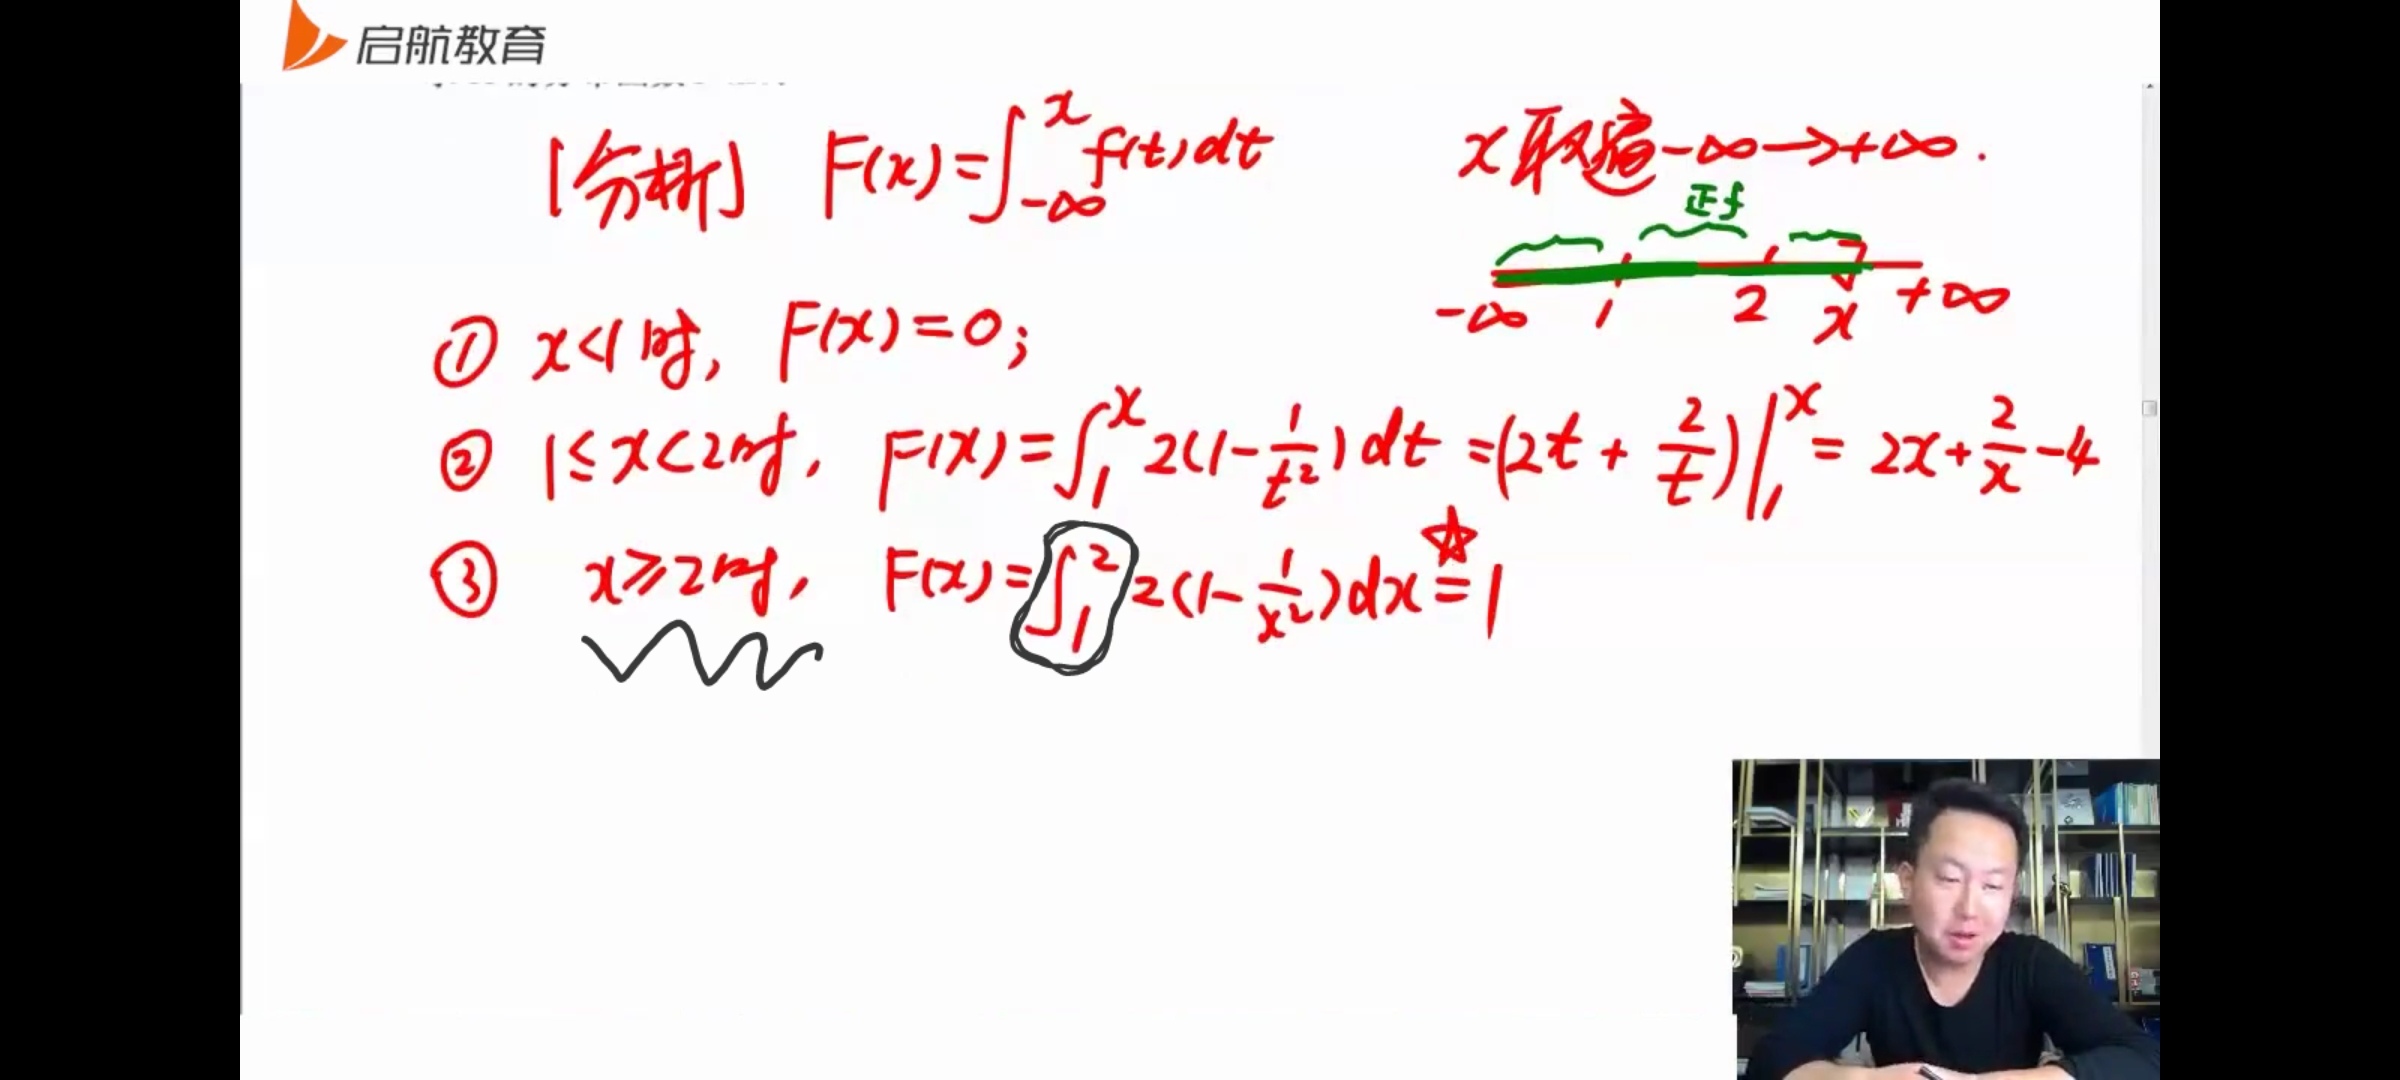 启航教育
[分析] F(x)=∫_{-∞}^{x} f(t)dt
x取遍-∞→+∞.
正f
-∞ 1 2 x +∞
① x<1时, F(x)=0;
② 1≤x<2时, F(x)=∫_1^x 2(1-1/t²)dt =(2t+2/t)|_1^x = 2x+2/x-4
③ x≥2时, F(x)=∫_1^2 2(1-1/x²)dx ☆= 1